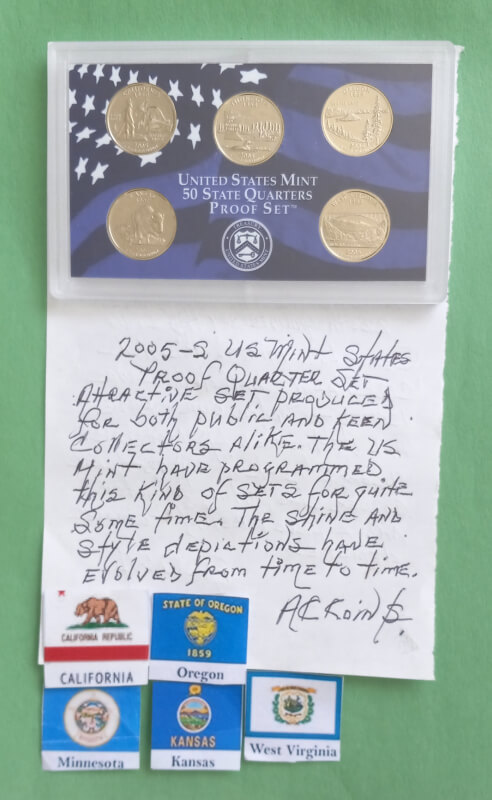 CALIFORNIA
2005
MINNESOTA
2005
OREGON
1859
2005
KANSAS
WEST VIRGINIA
2005
UNITED STATES MINT
50 STATE QUARTERS
PROOF SET™
2005-S US MINT STATES
PROOF QUARTER SET
ATTRACTIVE SET PRODUCED
for both public AND KEEN
COLLECTORS ALIKE. THE US
MINT HAVE PROGRAMMED
this KIND of SETS for quite
Some time. The Shine AND
Style depictions have
EVOLVED from time to time.
ACKoin$.
CALIFORNIA REPUBLIC
CALIFORNIA
STATE OF OREGON
1859
Oregon
Minnesota
KANSAS
Kansas
West Virginia